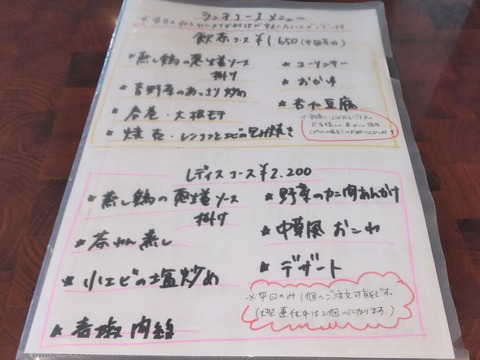 ランチコースメニュー
飲茶コース ¥1,650(平日のみ)
★ 蒸し鶏の葱生姜ソース
掛け
★ 青野菜のあっさり炒め
★ 春巻・大根モチ
★ 焼売・レンコンとエビの包み焼き
★ コーリンナー
★ おかゆ
★ 杏仁豆腐
レディスコース ¥2,200
★ 蒸し鶏の葱生姜ソース
掛け
★ 茶わん蒸し
★ 小エビの塩炒め
★ 青椒肉絲
★ 野菜のカニ肉あんかけ
★ 中華風おこわ
★ デザート
※平日のみ1個〜ご注文可能です。